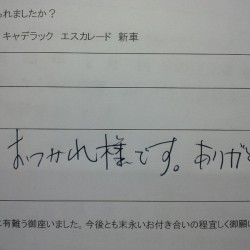 られましたか？
キャデラック エスカレード 新車
おつかれ様です。ありがと
に有難う御座いました。今後とも末永いお付き合いの程宜しく御願